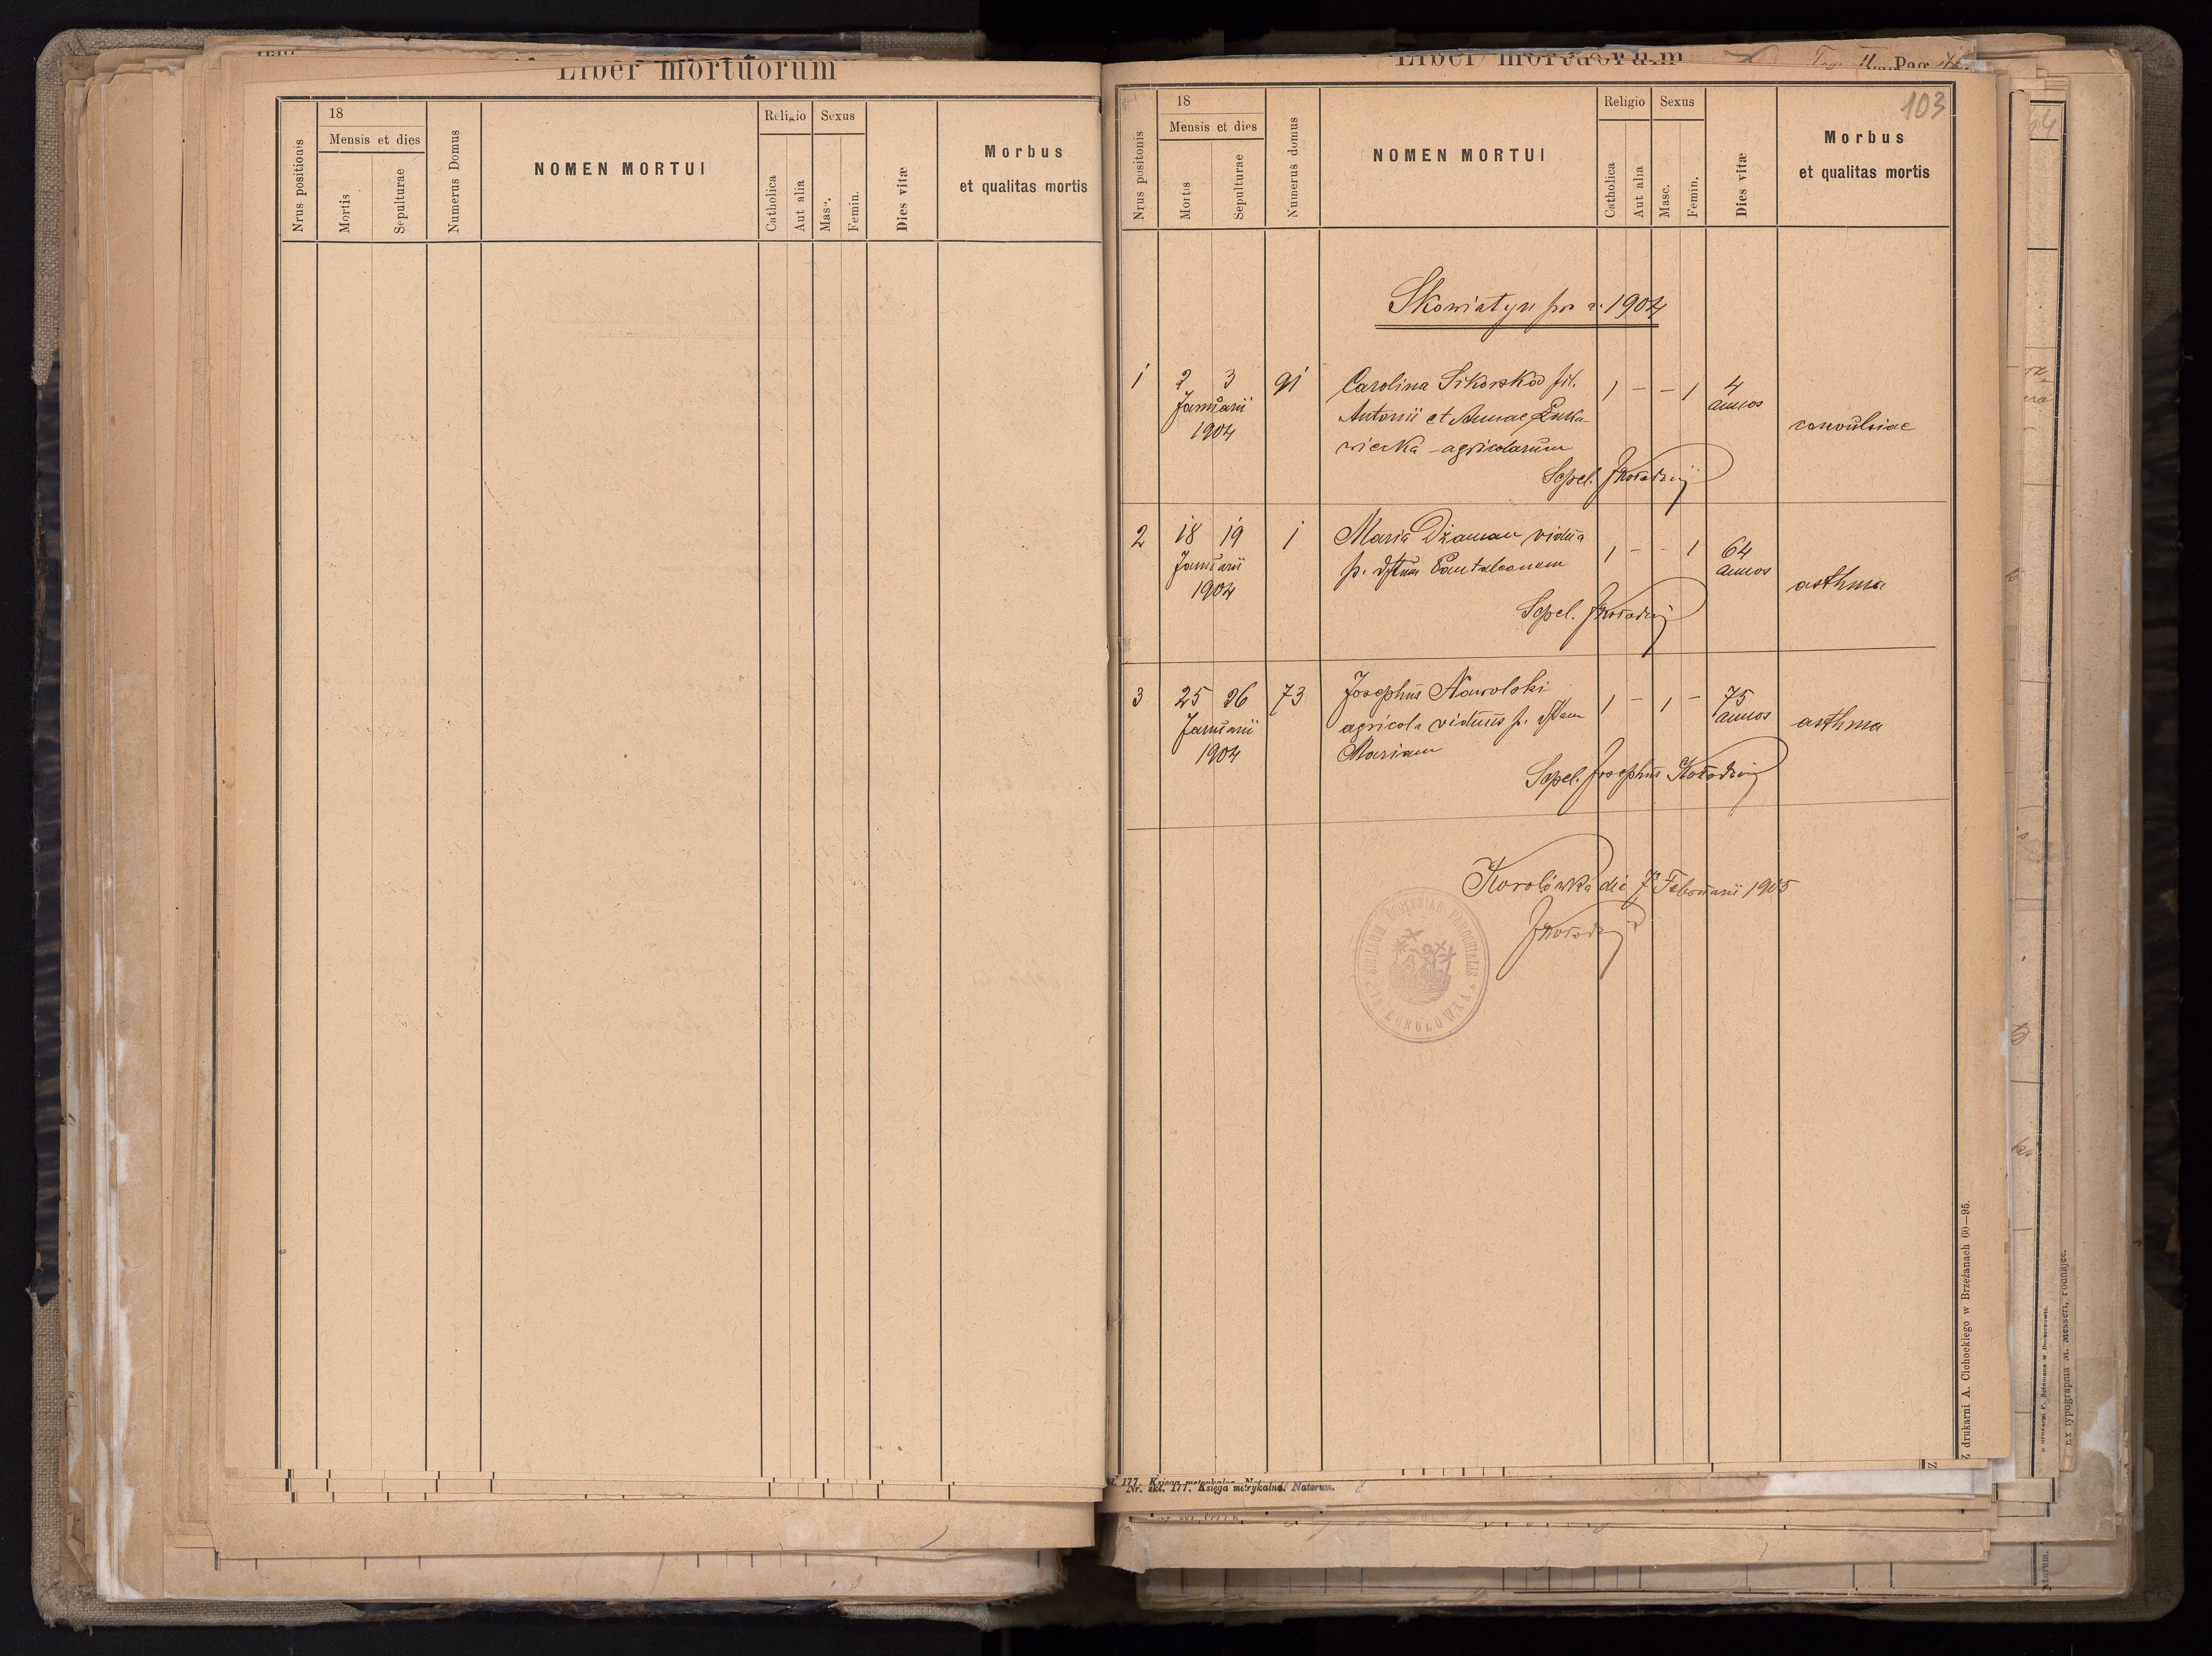 Liber mortuorum
18
Mensis et dies
Nrus positionis
Mortis
Sepulturae
Numerus Domus
NOMEN MORTUI
Religio
Sexus
Catholica
Aut alia
Masc.
Femin.
Dies vitæ
Morbus
et qualitas mortis
Liber mortuorum
Pag
103
18
Mensis et dies
Nrus positonis
Mortis
Sepulturae
Numerus domus
NOMEN MORTUI
Religio
Sexus
Catholica
Aut alia
Masc.
Femin.
Dies vitæ
Morbus
et qualitas mortis
Skowiatyn pro a. 1904
1 2 3 91 Carolina Sikorska fil. 1 – – 1 4
Januarii Antonii et Annae Łuka- annos
1904 wiecka agricolarum convulsiae
Sepel. JKołodzij
2 18 19 1 Maria Dżaman vidua 1 – – 1 64
Januarii p. dftum Pantaleonem annos
1904 asthma
Sepel. JKołodzij
3 25 26 73 Josephus Nawolski 1 – 1 – 75
Januarii agricola viduus p. dftam annos asthma
1904 Mariam
Sepel. Josephus Kołodzij
Korolówka die 7 Februarii 1905
JKołodzij
SIGILLUM ECCLESIAE PAROCHIALIS
KOROLOWKA
Z drukarni A. Cichockiego w Brzeżanach 60—95.
Ex typographia M. Messeri,
177. Księga metrykalna. Natorum.